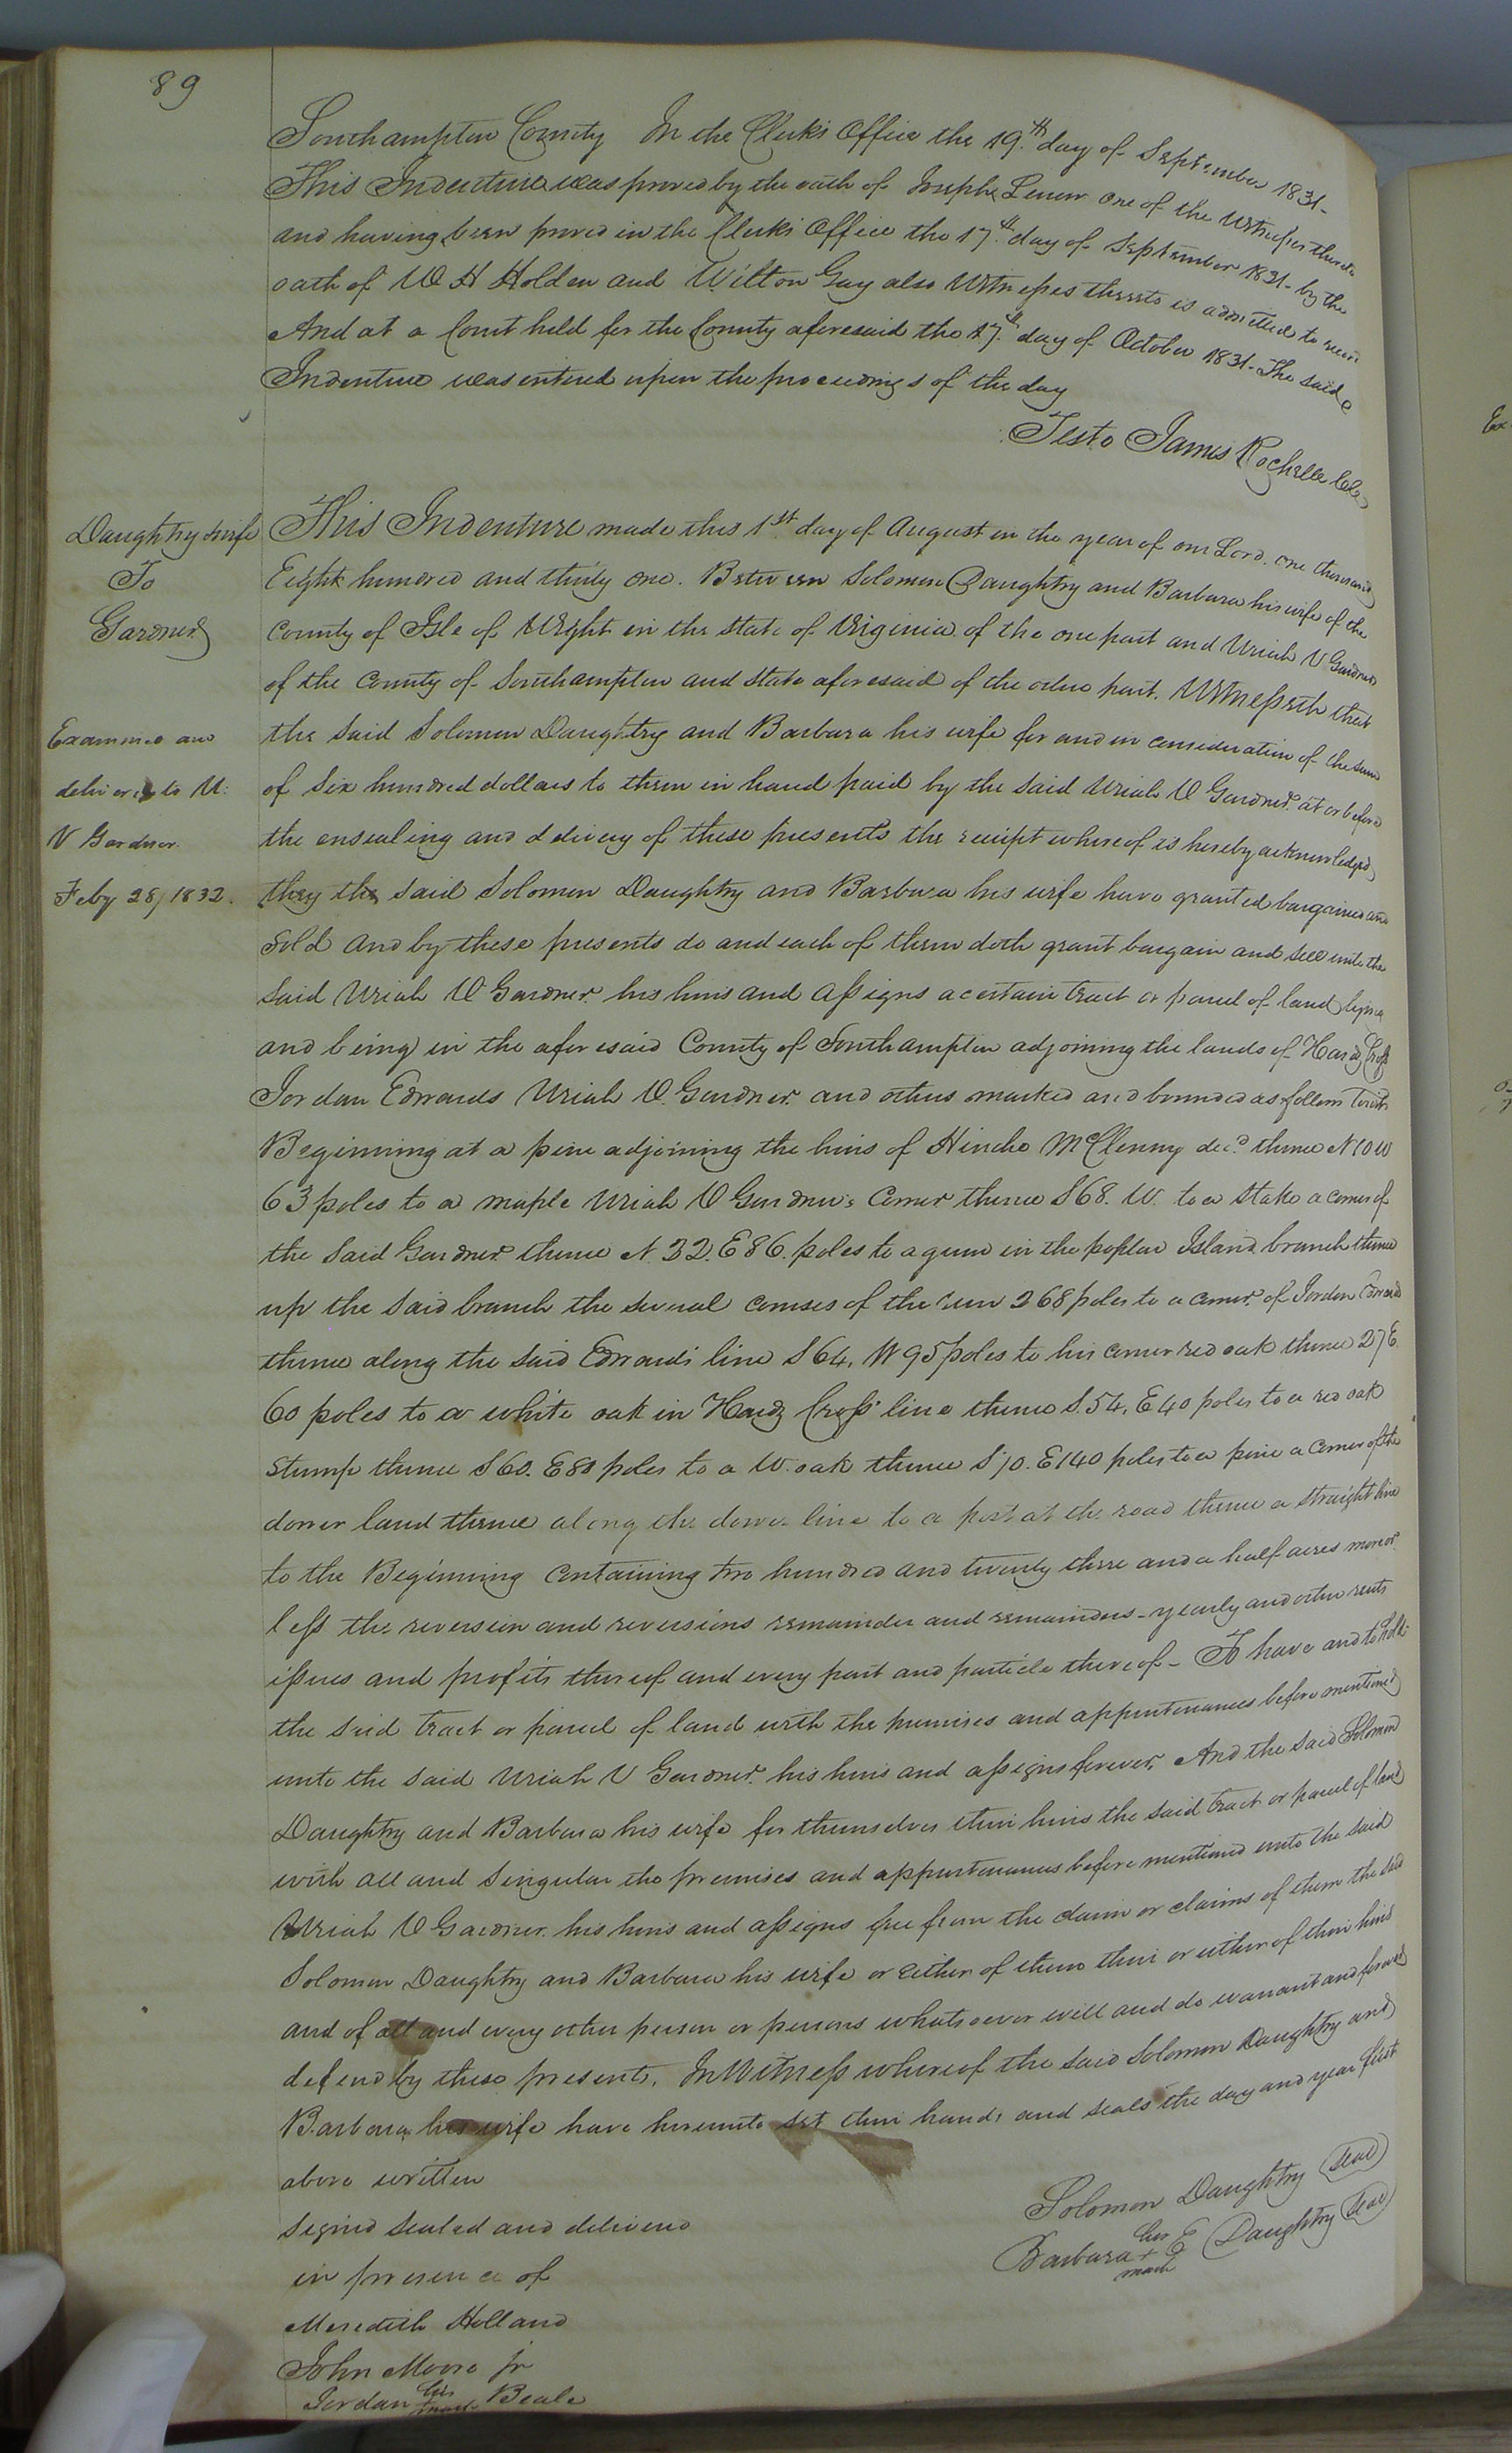 89
Southampton County In the Clerks Office the 19th day of September 1831-
This Indenture was proved by the oath of Joseph Lenow one of the Witnesses thereto
and having been proved in the Clerks Office the 17th day of September 1831- by the
oath of W H Holden and Wilton Gay also Witnesses thereto is admitted to record
And at a Court held for the County aforesaid the 17th day of October 1831- The said
Indenture was entered upon the proceedings of the day
Teste James Rochelle Clk
Daughtry & wife
To
Gardner
Examined and
delivered to U:
V Gardner
Feby 28/1832.
This Indenture made this 1st day of August in the year of our Lord. one thousand
Eight hundred and thirty one. Between Solomon Daughtry and Barbara his wife of the
County of Isle of Wight in the state of Virginia of the one part and Uriah V Gardner
of the County of Southampton and state aforesaid of the other part. Witnesseth that
the said Solomon Daughtry and Barbara his wife for and in consideration of the sum
of six hundred dollars to them in hand paid by the said Uriah V Gardner at or before
the ensealing and delivery of these presents the receipt whereof is hereby acknowledged,
they the said Solomon Daughtry and Barbara his wife have granted bargained and
sold and by these presents do and each of them doth grant bargain and sell unto the
said Uriah V Gardner his heirs and assigns a certain tract or parcel of land lying
and being in the aforesaid County of Southampton adjoining the lands of Hardy Cross
Jordan Edwards Uriah V. Gardner and others marked and bounded as follows Towit
Beginning at a pine adjoining the heirs of Hincho McClenny decd thence N 10 W
63 poles to a maple Uriah V Gardner's Corner thence S 68. W. to a stake a corner of
the said Gardner thence N. 32. E 86. poles to a gum in the poplar Island branch thence
up the said branch the several courses of the run 268 poles to a corner of Jordan Edwards
thence along the said Edwards line S 64, W 95 poles to his corner red oak thence 27 E
60 poles to a white oak in Hardy Cross' line thence S. 54, E 40 poles to a red oak
stump thence S 60. E 80 poles to a W. oak thence S 70. E 140 poles to a pine a corner of the
dower land thence along the dower line to a post at the road thence a straight line
to the Beginning Containing two hundred and twenty three and a half acres more or
less the reversion and reversions remainder and remainders - yearly and other rents
issues and profits thereof and every part and particle thereof - To have and to hold
the said tract or parcel of land with the premises and appurtenances before mentioned
unto the said Uriah V Gardner his heirs and assigns forever, And the said Solomon
Daughtry and Barbara his wife for themselves their heirs the said tract or parcel of land
with all and singular the premises and appurtenances before mentioned unto the said
Uriah V Gardner his heirs and assigns free from the claim or claims of them the said
Solomon Daughtry and Barbara his wife or either of them their or either of their heirs
and of all and every other person or persons whatsoever will and do warrant and forever
defend by these presents. In Witness whereof the said Solomon Daughtry and
Barbara his wife have hereunto set their hands and seals the day and year first
above written
Signed sealed and delivered
in presence of
Meredith Holland
John Moore jr
Jordan his mark Beale
Solomon Daughtry (Seal)
Barbara her + mark E Daughtry (Seal)